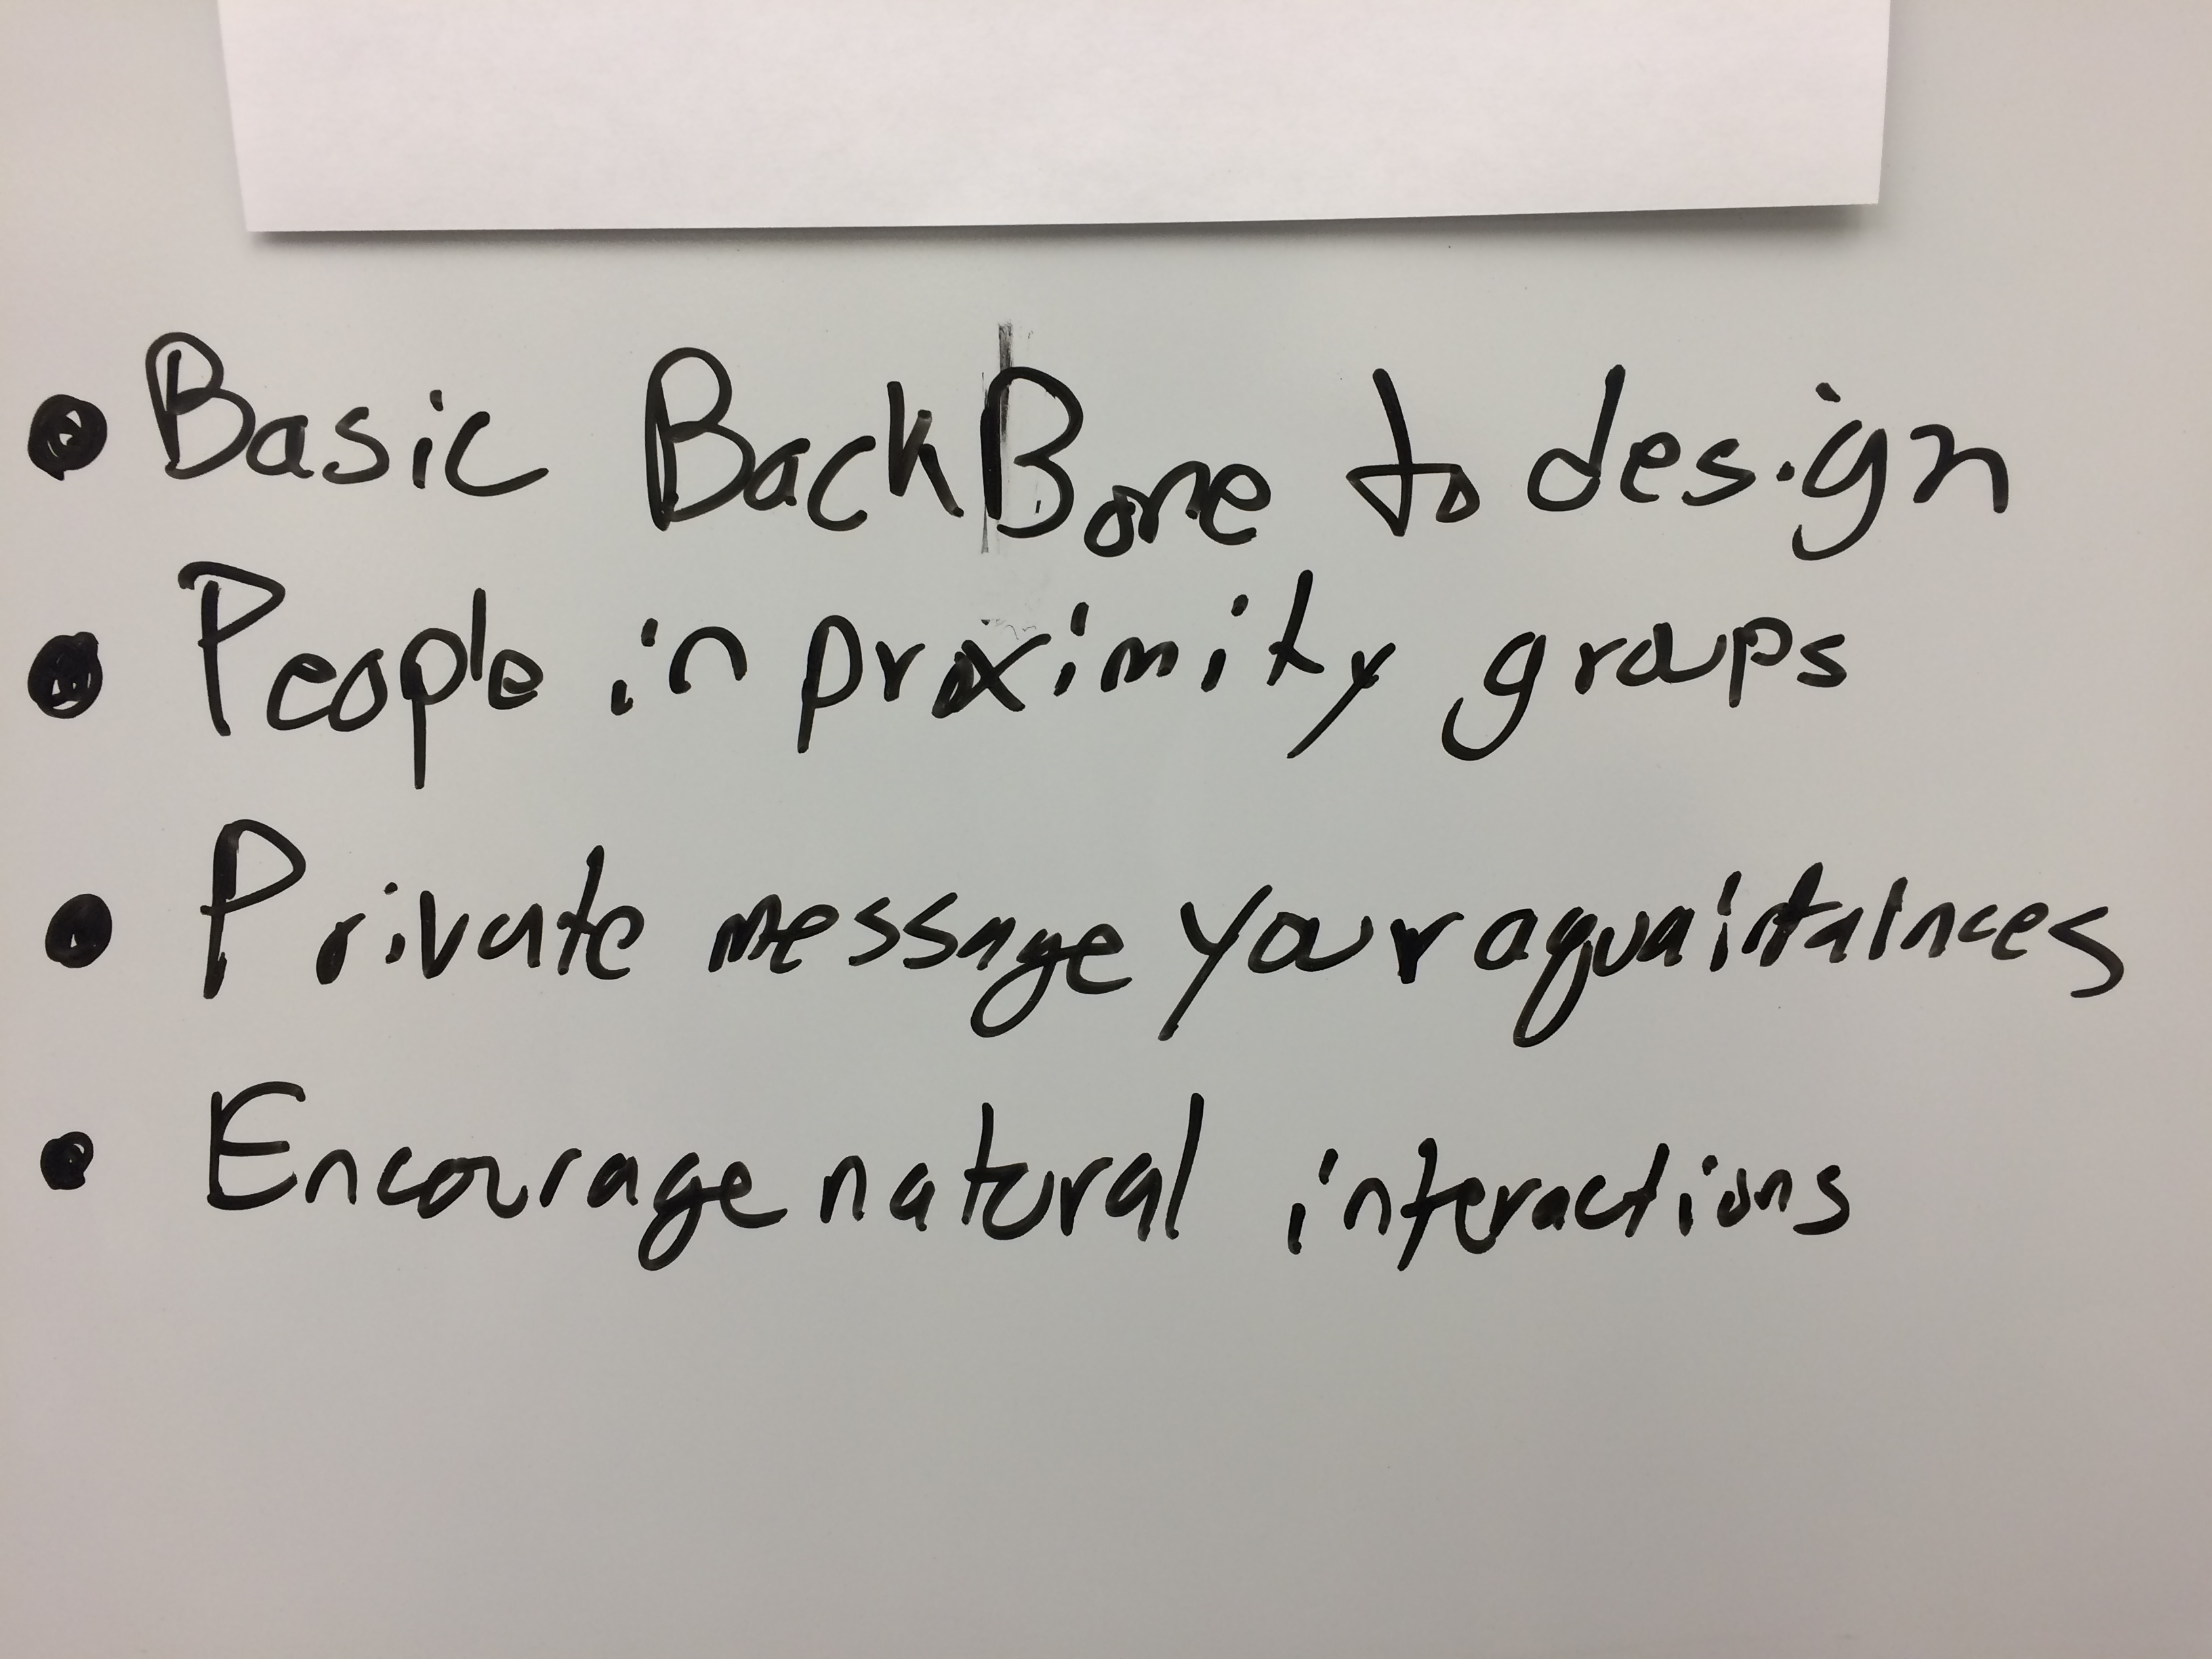 • Basic BackBone to design
• People in proximity groups
• Private message your aquaintainces
• Encourage natural interactions